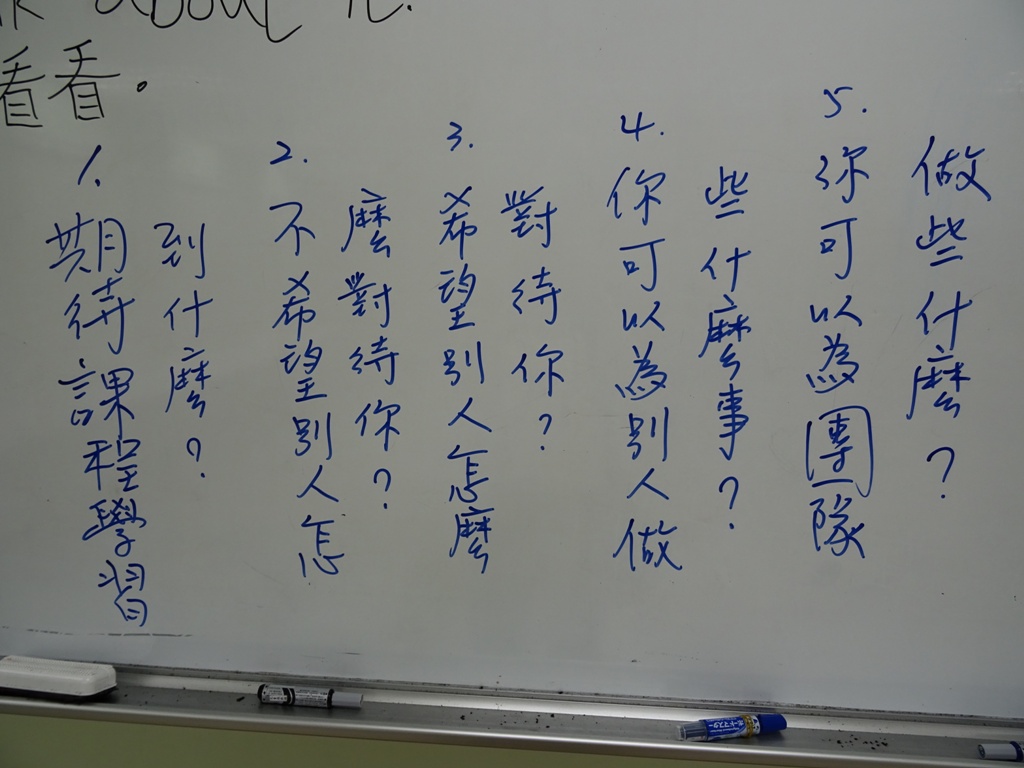 about it.
看看。
1.
期待課程學習
到什麼？
2.
不希望別人怎
麼對待你？
3.
希望別人怎麼
對待你？
4.
你可以為別人做
些什麼事？
5.
你可以為團隊
做些什麼？